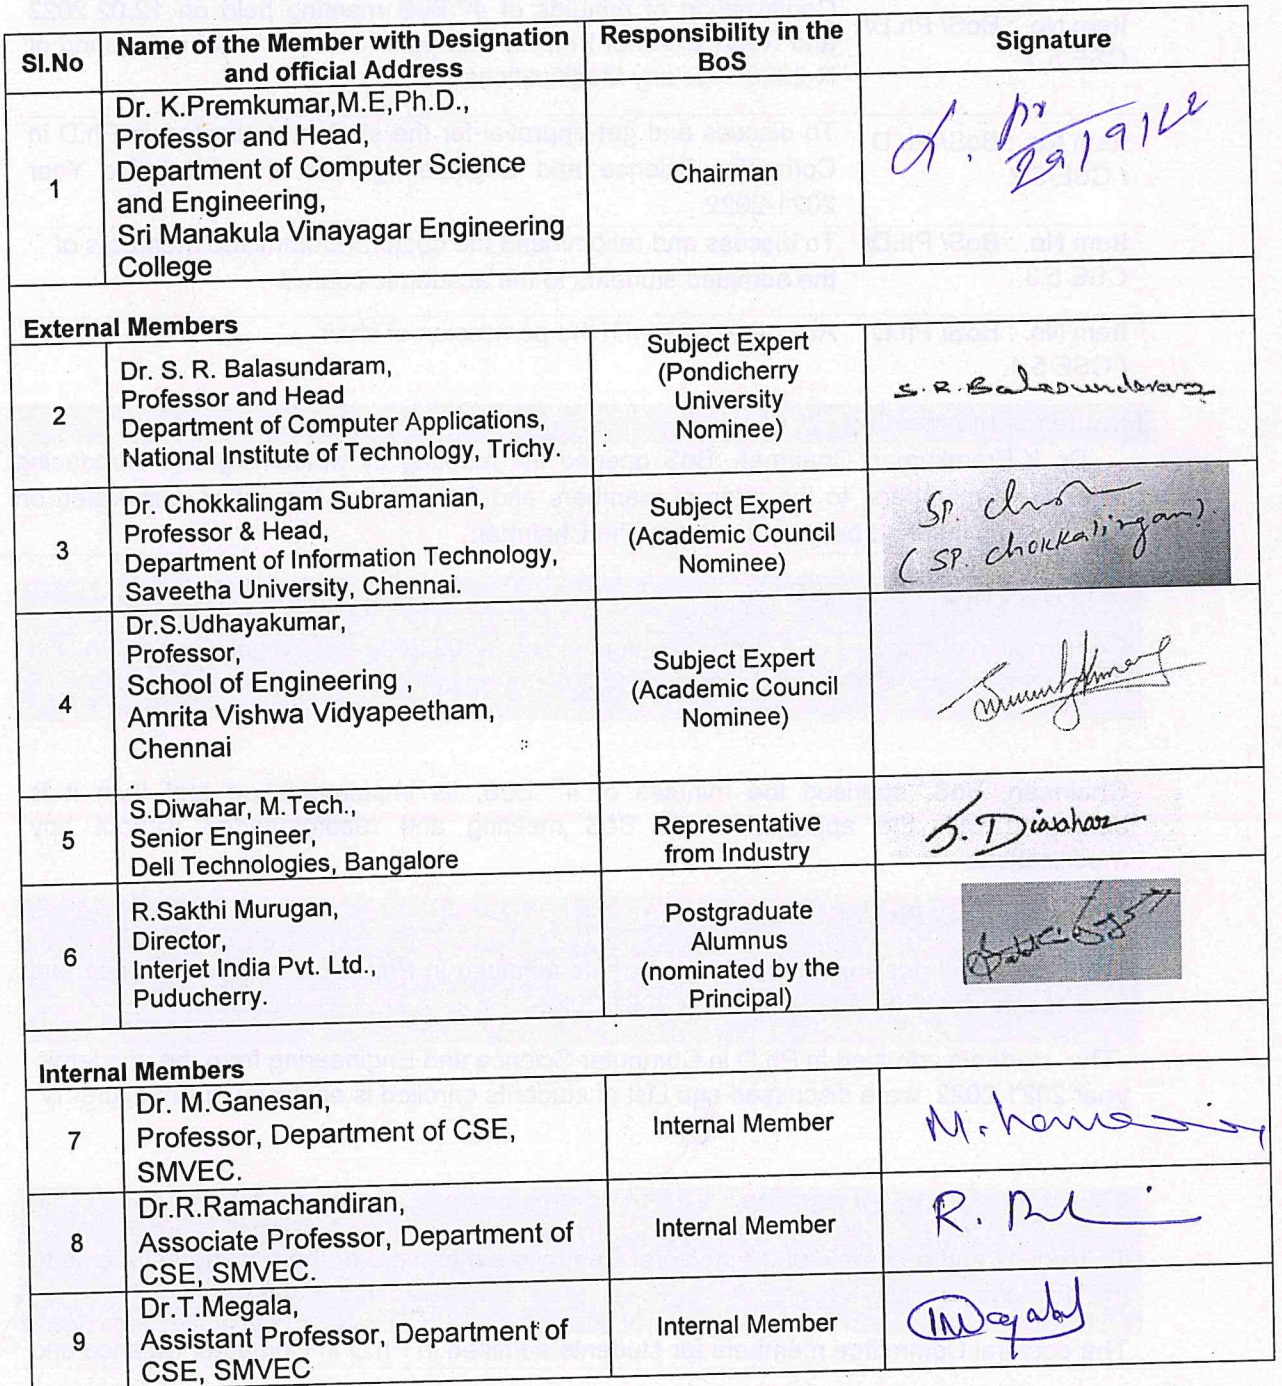 Sl.No
Name of the Member with Designation
and official Address
Responsibility in the
BoS
Signature
1
Dr. K.Premkumar,M.E,Ph.D.,
Professor and Head,
Department of Computer Science
and Engineering,
Sri Manakula Vinayagar Engineering
College
Chairman
29/9/22
External Members
2
Dr. S. R. Balasundaram,
Professor and Head
Department of Computer Applications,
National Institute of Technology, Trichy.
Subject Expert
(Pondicherry
University
Nominee)
S.R.Balasundaram
3
Dr. Chokkalingam Subramanian,
Professor & Head,
Department of Information Technology,
Saveetha University, Chennai.
Subject Expert
(Academic Council
Nominee)
SP.
(SP. Chokkalingam)
4
Dr.S.Udhayakumar,
Professor,
School of Engineering ,
Amrita Vishwa Vidyapeetham,
Chennai
Subject Expert
(Academic Council
Nominee)
5
S.Diwahar, M.Tech.,
Senior Engineer,
Dell Technologies, Bangalore
Representative
from Industry
S. Diwahar
6
R.Sakthi Murugan,
Director,
Interjet India Pvt. Ltd.,
Puducherry.
Postgraduate
Alumnus
(nominated by the
Principal)
Internal Members
7
Dr. M.Ganesan,
Professor, Department of CSE,
SMVEC.
Internal Member
M.
8
Dr.R.Ramachandiran,
Associate Professor, Department of
CSE, SMVEC.
Internal Member
R.
9
Dr.T.Megala,
Assistant Professor, Department of
CSE, SMVEC
Internal Member